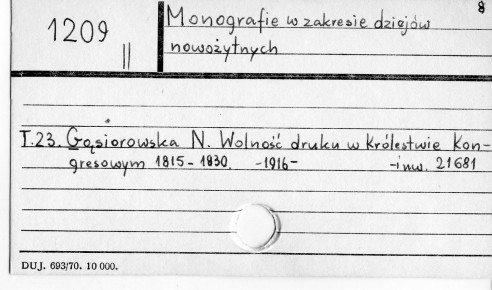 8
1209
||
Monografie w zakresie dziejów
nowożytnych
T.23. Gąsiorowska N. Wolność druku w Królestwie Kon-
gresowym 1815-1830. -1916- -inw. 21681
DUJ. 693/70. 10 000.